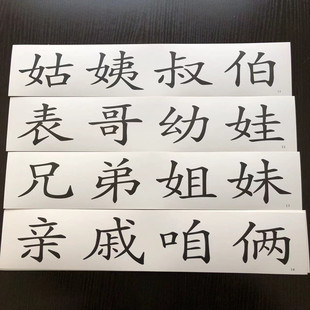 姑姨叔伯
表哥幼娃
兄弟姐妹
亲戚咱俩